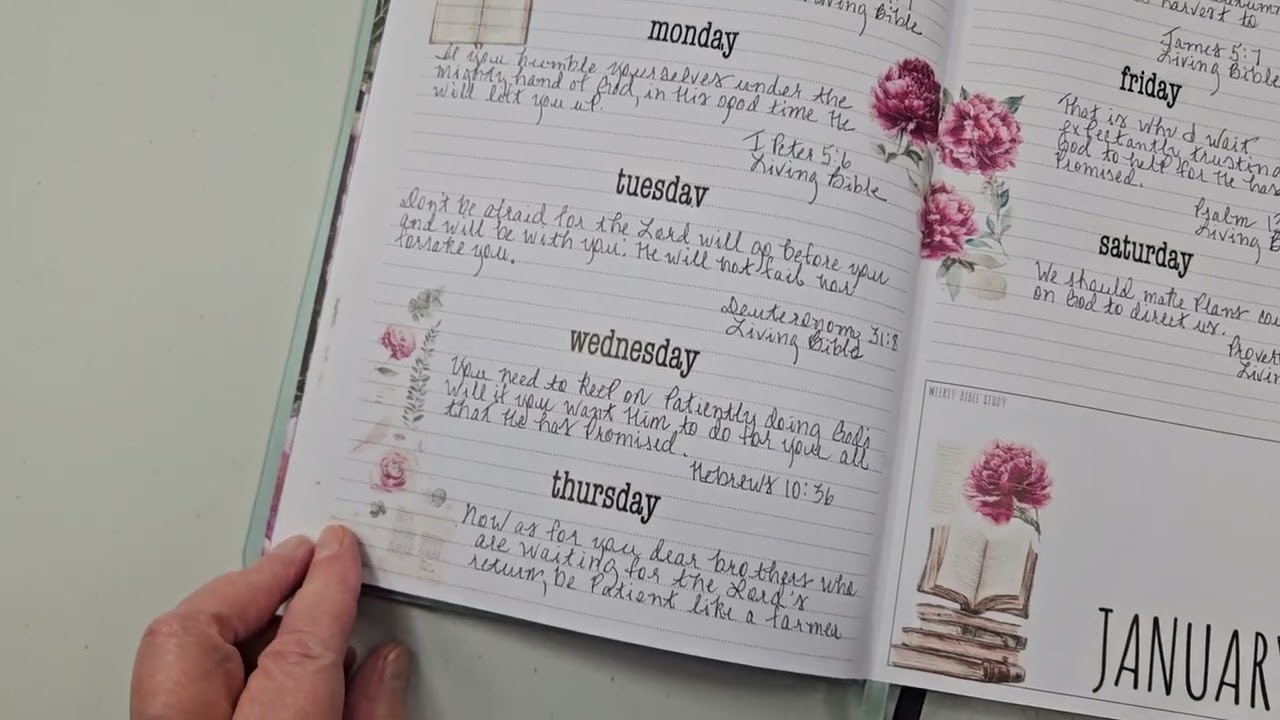 Living Bible
monday
If you humble yourselves under the
mighty hand of God, in His good time He
will lift you up.
I Peter 5:6
Living Bible
tuesday
Don't be afraid for the Lord will go before you
and will be with you. He will not fail nor
forsake you.
Deuteronomy 31:8
Living Bible
wednesday
You need to keep on Patiently doing God's
will if you want Him to do for you all
that He has Promised.
Hebrews 10:36
thursday
Now as for you dear brothers who
are waiting for the Lord's
return, be Patient like a farmer
harvest to
James 5:7
Living Bible
friday
That is why I wait
expectantly, trusting
God to help for He has
Promised.
Psalm
Living
saturday
We should make Plans
on God to direct us.
WEEKLY BIBLE STUDY
JANUARY